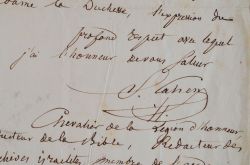 dame la Duchesse, l'expression du
profond respect avec lequel
j'ai l'honneur de vous saluer
S. Cahen
Chevalier de la Légion d'honneur
ducteur de la Bible, Rédacteur des
chives israélites, membre de